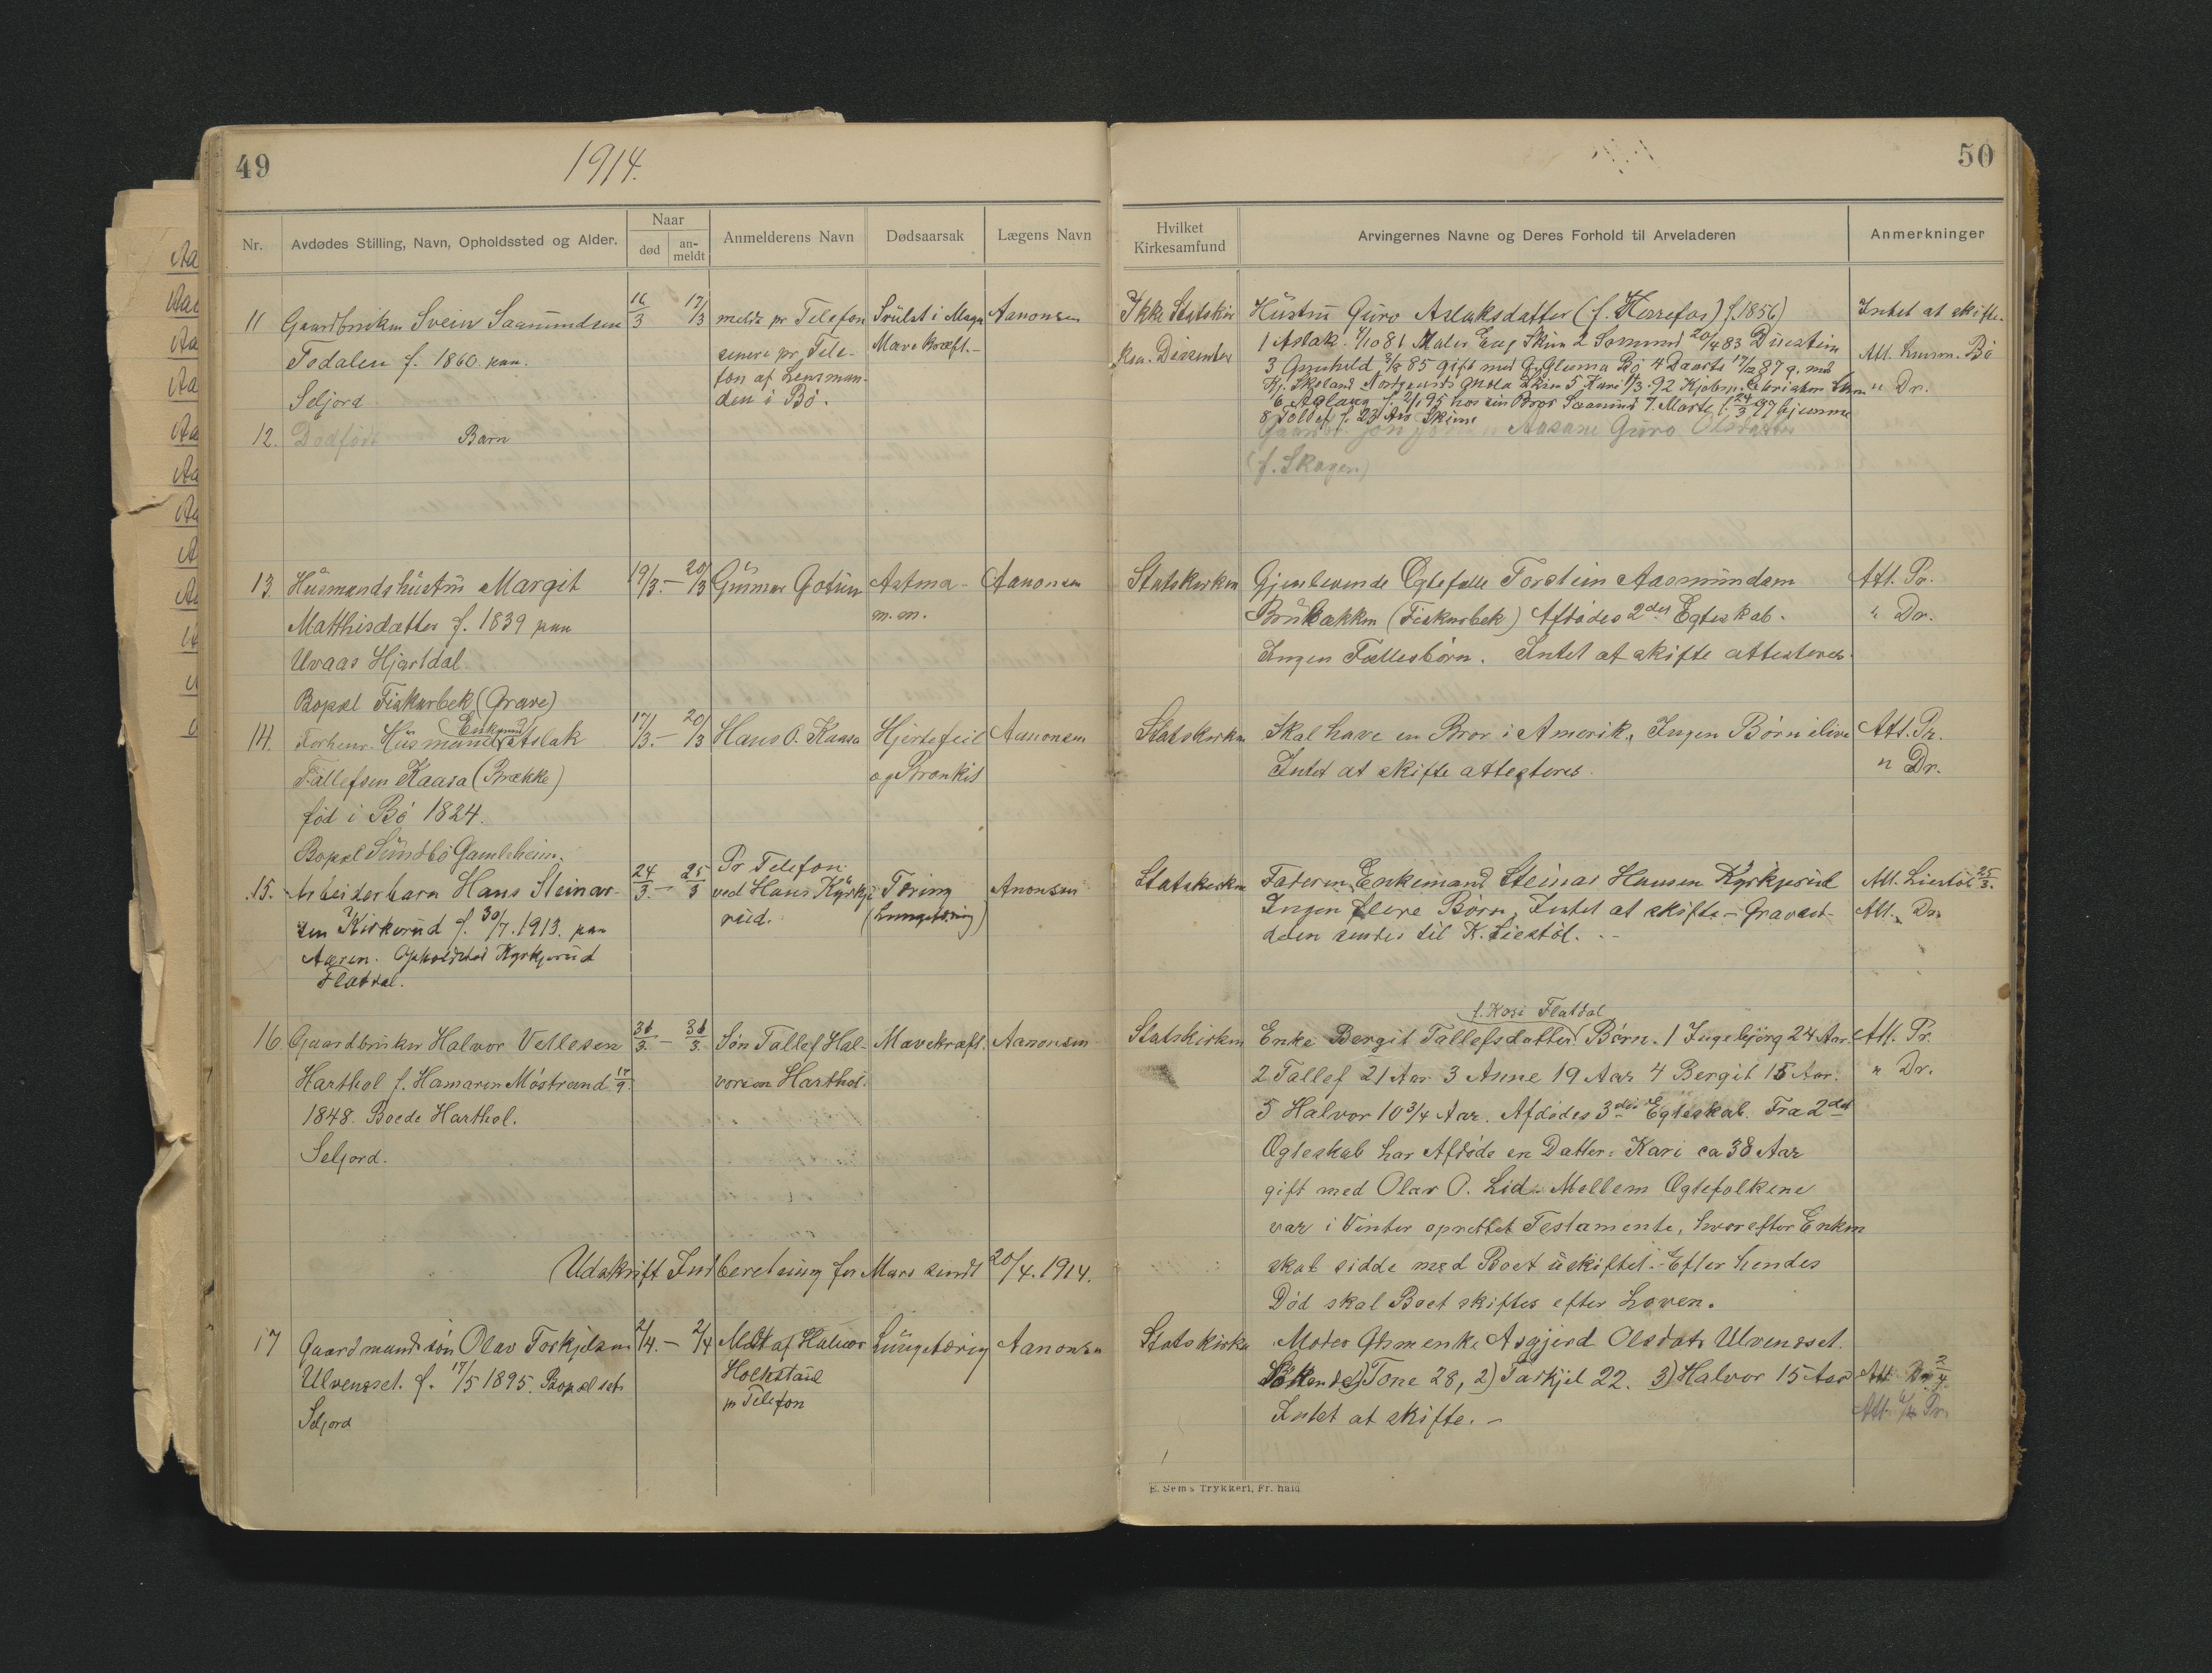 49
1914.
Nr.
Avdødes Stilling, Navn, Opholdssted og Alder.
Naar
død
an-
meldt
Anmelderens Navn
Dødsaarsak
Lægens Navn
11 Gaardbruker Svein Saamundsen 16/3 17/3 meldt pr Telefon Svulst i Magen Aanonsen
Todalen f. 1860 paa senere pr. Tele- Mave Kræft.-
fon af Lensman-
Seljord den i Bö.
12. Dødfødt Barn
13. Husmandshustru Margit 19/3. - 20/3 Gunnar Gotuin Astma - Aanonsen
Matthisdatter f. 1839 paa m.m.
Uvaas Hjartdal.
Bopæl Fiskarbek (Grave)
Enkemd
14. Forhenv. Husmand Aslak 17/3. - 20/3 Hans O. Kaasa Hjertefeil Aanonsen
Tallefsen Kaasa (Brække) og Bronkit
fød i Bö 1824.
Bopæl Sundbö Gamleheim.
Pr Telefon
15. Arbeiderbarn Hans Steinar- 24/3. - 25/3 ved Hans Kyrkje- Tæring Anonsen
sen Kirkerud f. 30/7. 1913. paa rud. (Lungetæring)
Aasen. Opholdsted Kyrkjerud
Flatdal.
16. Gaardbruker Halvor Vetlesen 31/3. - 31/3. Søn Tallef Hal- Mavekræft. Aanonsen
Harthol f. Hamaren Möstrand 17/9 vorsen Harthol.
1848. Boede Harthol.
Seljord.
Udskrift Indberetning for Mars sendt 20/4. 1914.
17 Gaardmandssön Olav Torkjelsen 2/4. - 2/4 Meldt af Halvor Lungetæring Aanonsen
Ulvensset. f. 17/5 1895. Bopæl sst.
pr Telefon
Seljord
50
Hvilket
Kirkesamfund
Arvingernes Navne og Deres Forhold til Arveladeren
Anmerkninger
Ikke Statskir Hustru Guro Aslaksdatter (f. Herrefos) f. 1856) Intet at skifte.
ken. Dissenter 1 Aslak 81 Maler 2 Somund 20/4 83
3 Gunhild 85 gift med Bö 4 Daarte 87 g. med Att. Lensm. Bö
5 Kari 92 " Dr.
6 Aslaug f. 95 hos sin Bror Saamund 7. Marte f. 24/3 97 hjemme
8 Tollef f. 23 Aar Skien
Aasane Guro Olsdatter
(f. Skogen)
Statskirken Gjenlevende Ægtefælle Torstein Aasmundsen Att. Pr.
Brubakken (Fiskarbek) Afdødes 2det Egteskab. " Dr.
Ingen Fællesbörn. Intet at skifte attesteres.
Statskirken Skal have en Bror i Amerik. Ingen Börn ilive Att. Pr.
Intet at skifte attesteres. " Dr.
Statskirken Faderen, Enkemand Steinar Hansen Kyrkjerud Att. Liestöl 25/3.
Ingen flere Börn, Intet at skifte - Att. Dr.
sendes til K. Liestöl. -
f. Kasi Flatdal
Statskirken Enke Bergit Tallefsdatter Börn. 1 Ingebjörg 24 Aar Att. Pr.
2 Tallef 21 Aar 3 Anne 19 Aar 4 Bergit 15 Aar. " Dr.
5 Halvor 10 3/4 Aar. Afdödes 3die Egteskab. Fra 2det
Ægteskab har Afdöde en Datter: Kari ca 38 Aar
gift med Olav O. Lid. Mellem Ægtefolkene
var i Vinter oprettet Testamente, hvorefter Enken
skal sidde med Boet uskiftet. - Efter hendes
Död skal Boet skiftes efter Loven.
Statskirken Moder Asgjerd Olsdatr Ulvensset.
Söskende 1) Tone 28, 2) Torkjel 22. 3) Halvor 15 Aar Att. Dr. 2/4
Intet at skifte. - Att. Pr.
E. Sem's Trykkeri, Fr. hald